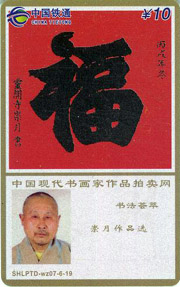 中国铁通
CHINA TIETONG
¥10
丙戌年冬
福
灵開寺崇月书
中国现代书画家作品拍卖网
书法荟萃
崇月作品选
SHLPTD-wz07-6-19